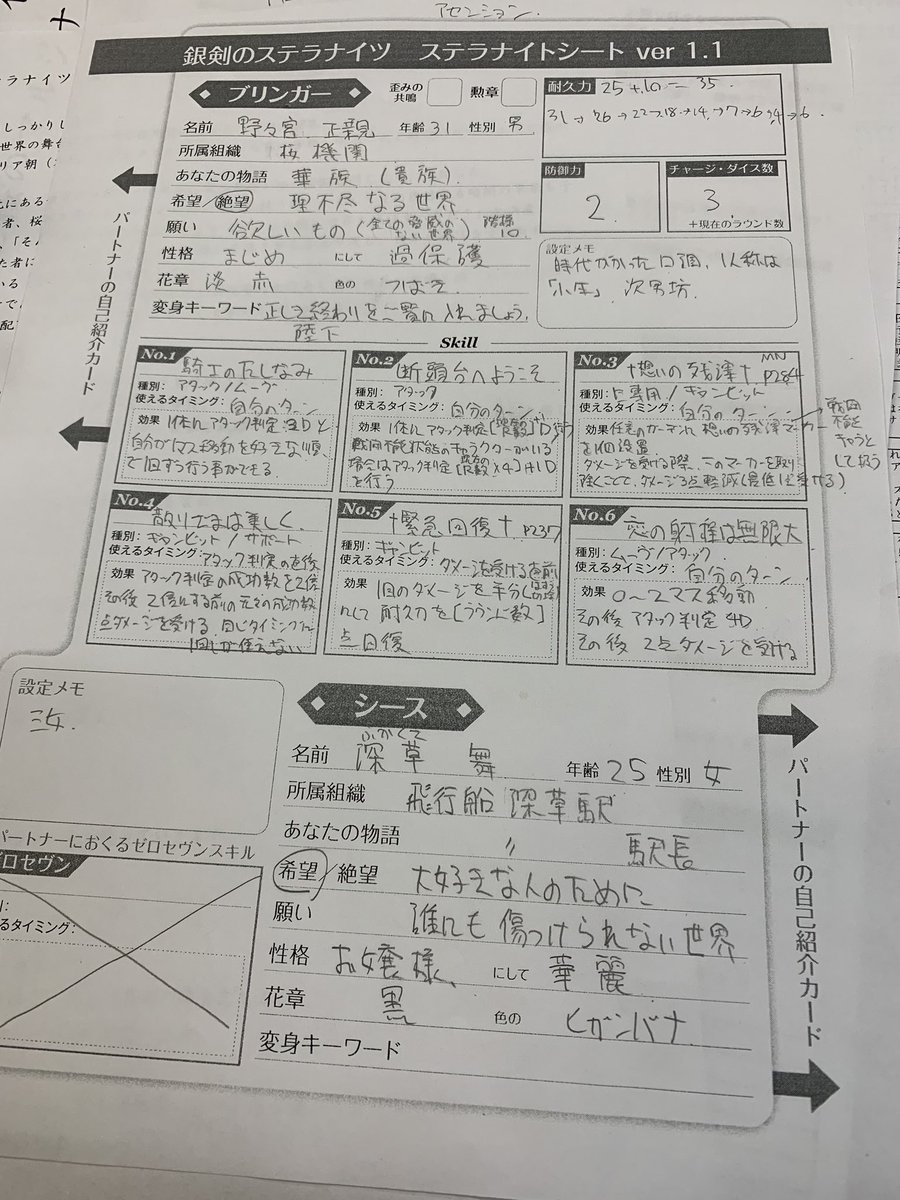 アセンション.
銀剣のステラナイツ　ステラナイトシート ver 1.1
ブリンガー
歪みの共鳴
勲章
耐久力 25+10=35.
31→26→22→18→14→7→6
名前 野々宮 正親 年齢 31 性別 男
所属組織 桜機関
あなたの物語 華族(貴族).
希望/絶望 理不尽なる世界
願い 欲しいもの(全ての脅威のない世界)
性格 まじめ にして 過保護
花章 淡赤 色の つばき
変身キーワード 正しき終わりをご覧に入れましょう.
陛下
防御力
2
チャージ・ダイス数
3
+現在のラウンド数
設定メモ
時代がかった口調、1人称は
「小生」次男坊.
Skill
No.1 騎士のたしなみ
種別: アタック/ムーヴ
使えるタイミング: 自分のターン
効果 1体にアタック判定:3Dと
自分が1マス移動を好きな順
で1回ずつ行う事ができる.
No.2 断頭台へようこそ
種別: アタック
使えるタイミング: 自分のターン
効果 1体にアタック判定
戦闘不能状態のキャラクターがいる
場合はアタック判定
を行う
No.3 †想いの残滓† P284
種別: 専用/ギャンビット
使えるタイミング: 自分のターン
効果 任意のガーデンに想いの残滓マーカー
を1個設置
ダメージを受ける際、このマーカーを取り
除くことで、ダメージ3点軽減(最低1は受ける)
No.4 散りざまは美しく
種別: ギャンビット/サポート
使えるタイミング: アタック判定の直後
効果 アタック判定の成功数を2倍
その後2倍にする前の元々の成功数
点ダメージを受ける 同じタイミングに
1回しか使えない
No.5 †緊急回復† P237
種別: ギャンビット
使えるタイミング: ダメージを受ける直前
効果 1回のダメージを半分
にして耐久力を[ラウンド数]
点回復
No.6 恋の射程は無限大
種別: ムーヴ/アタック
使えるタイミング: 自分のターン
効果 0〜2マス移動
その後アタック判定4D
その後2点ダメージを受ける
パートナーの自己紹介カード
設定メモ
三女.
パートナーにおくるゼロセヴンスキル
ロセヴン
るタイミング:
シース
ふかくさ
名前 深草 舞 年齢 25 性別 女
所属組織 飛行船 深草駅
あなたの物語 〃 駅長
希望/絶望 大好きな人のために
願い 誰にも傷つけられない世界
性格 お嬢様、 にして 華麗
花章 黒 色の ヒガンバナ
変身キーワード
パートナーの自己紹介カード